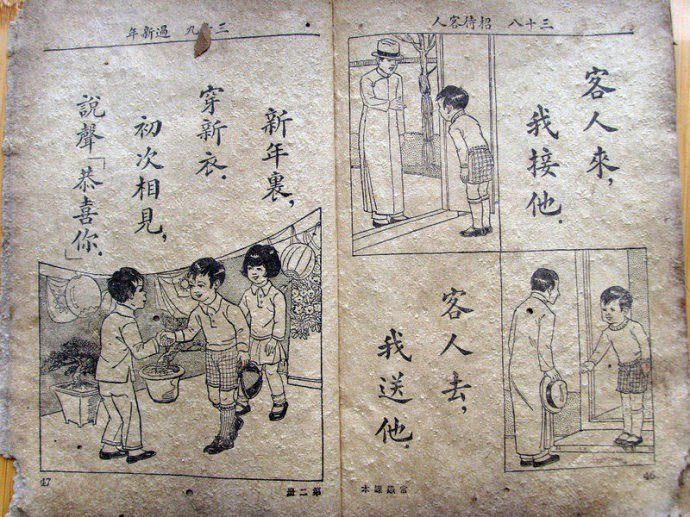 三十八 招待客人
客人來，
我接他．
客人去，
我送他．
常識課本
46
三九 過新年
新年裏，
穿新衣．
初次相見，
說聲「恭喜你．」
第二冊
47